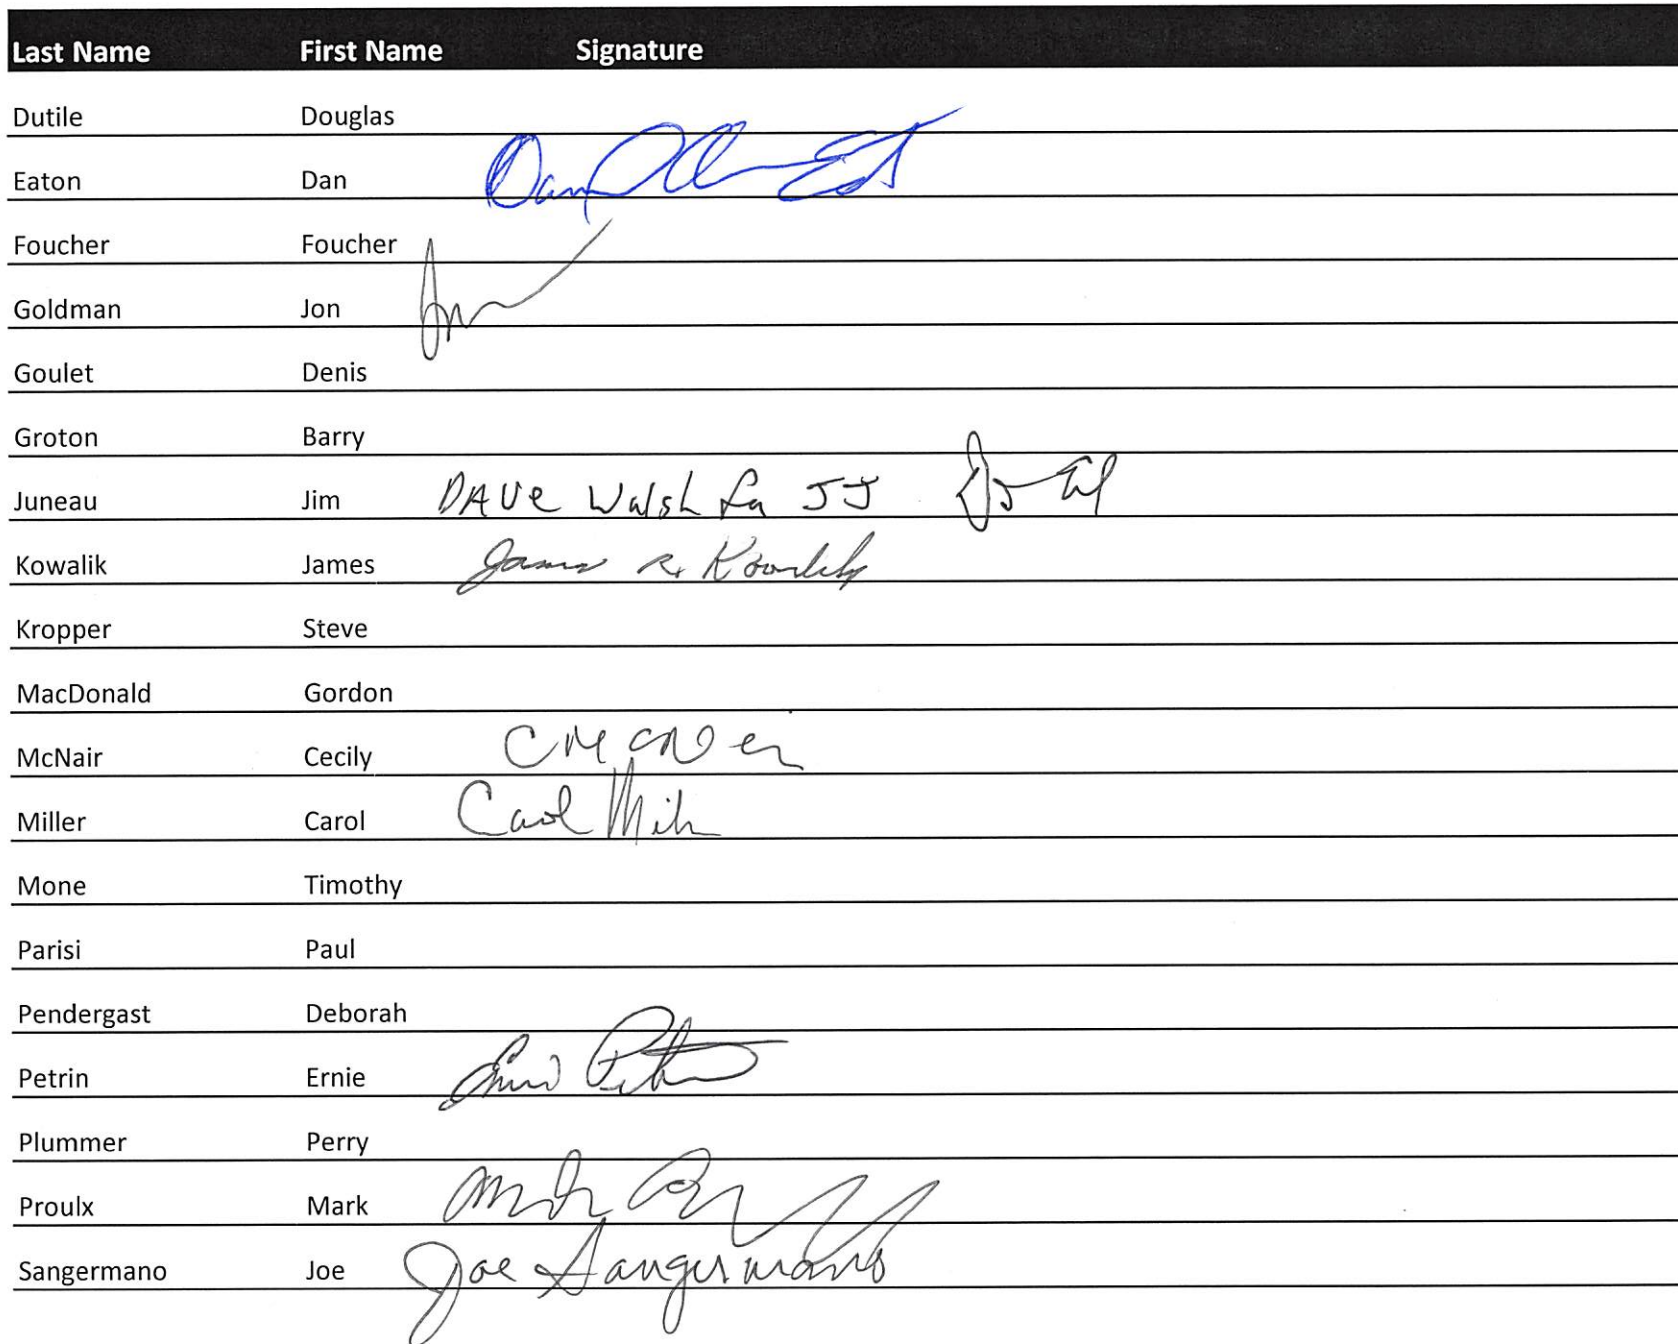 Last Name First Name Signature
Dutile Douglas
Eaton Dan
Foucher Foucher
Goldman Jon
Goulet Denis
Groton Barry
Juneau Jim DAVe Walsh for JJ
Kowalik James James R. Kowalik
Kropper Steve
MacDonald Gordon
McNair Cecily CMcNair
Miller Carol Carol Miller
Mone Timothy
Parisi Paul
Pendergast Deborah
Petrin Ernie Ernie Petrin
Plummer Perry
Proulx Mark
Sangermano Joe Joe Sangermano